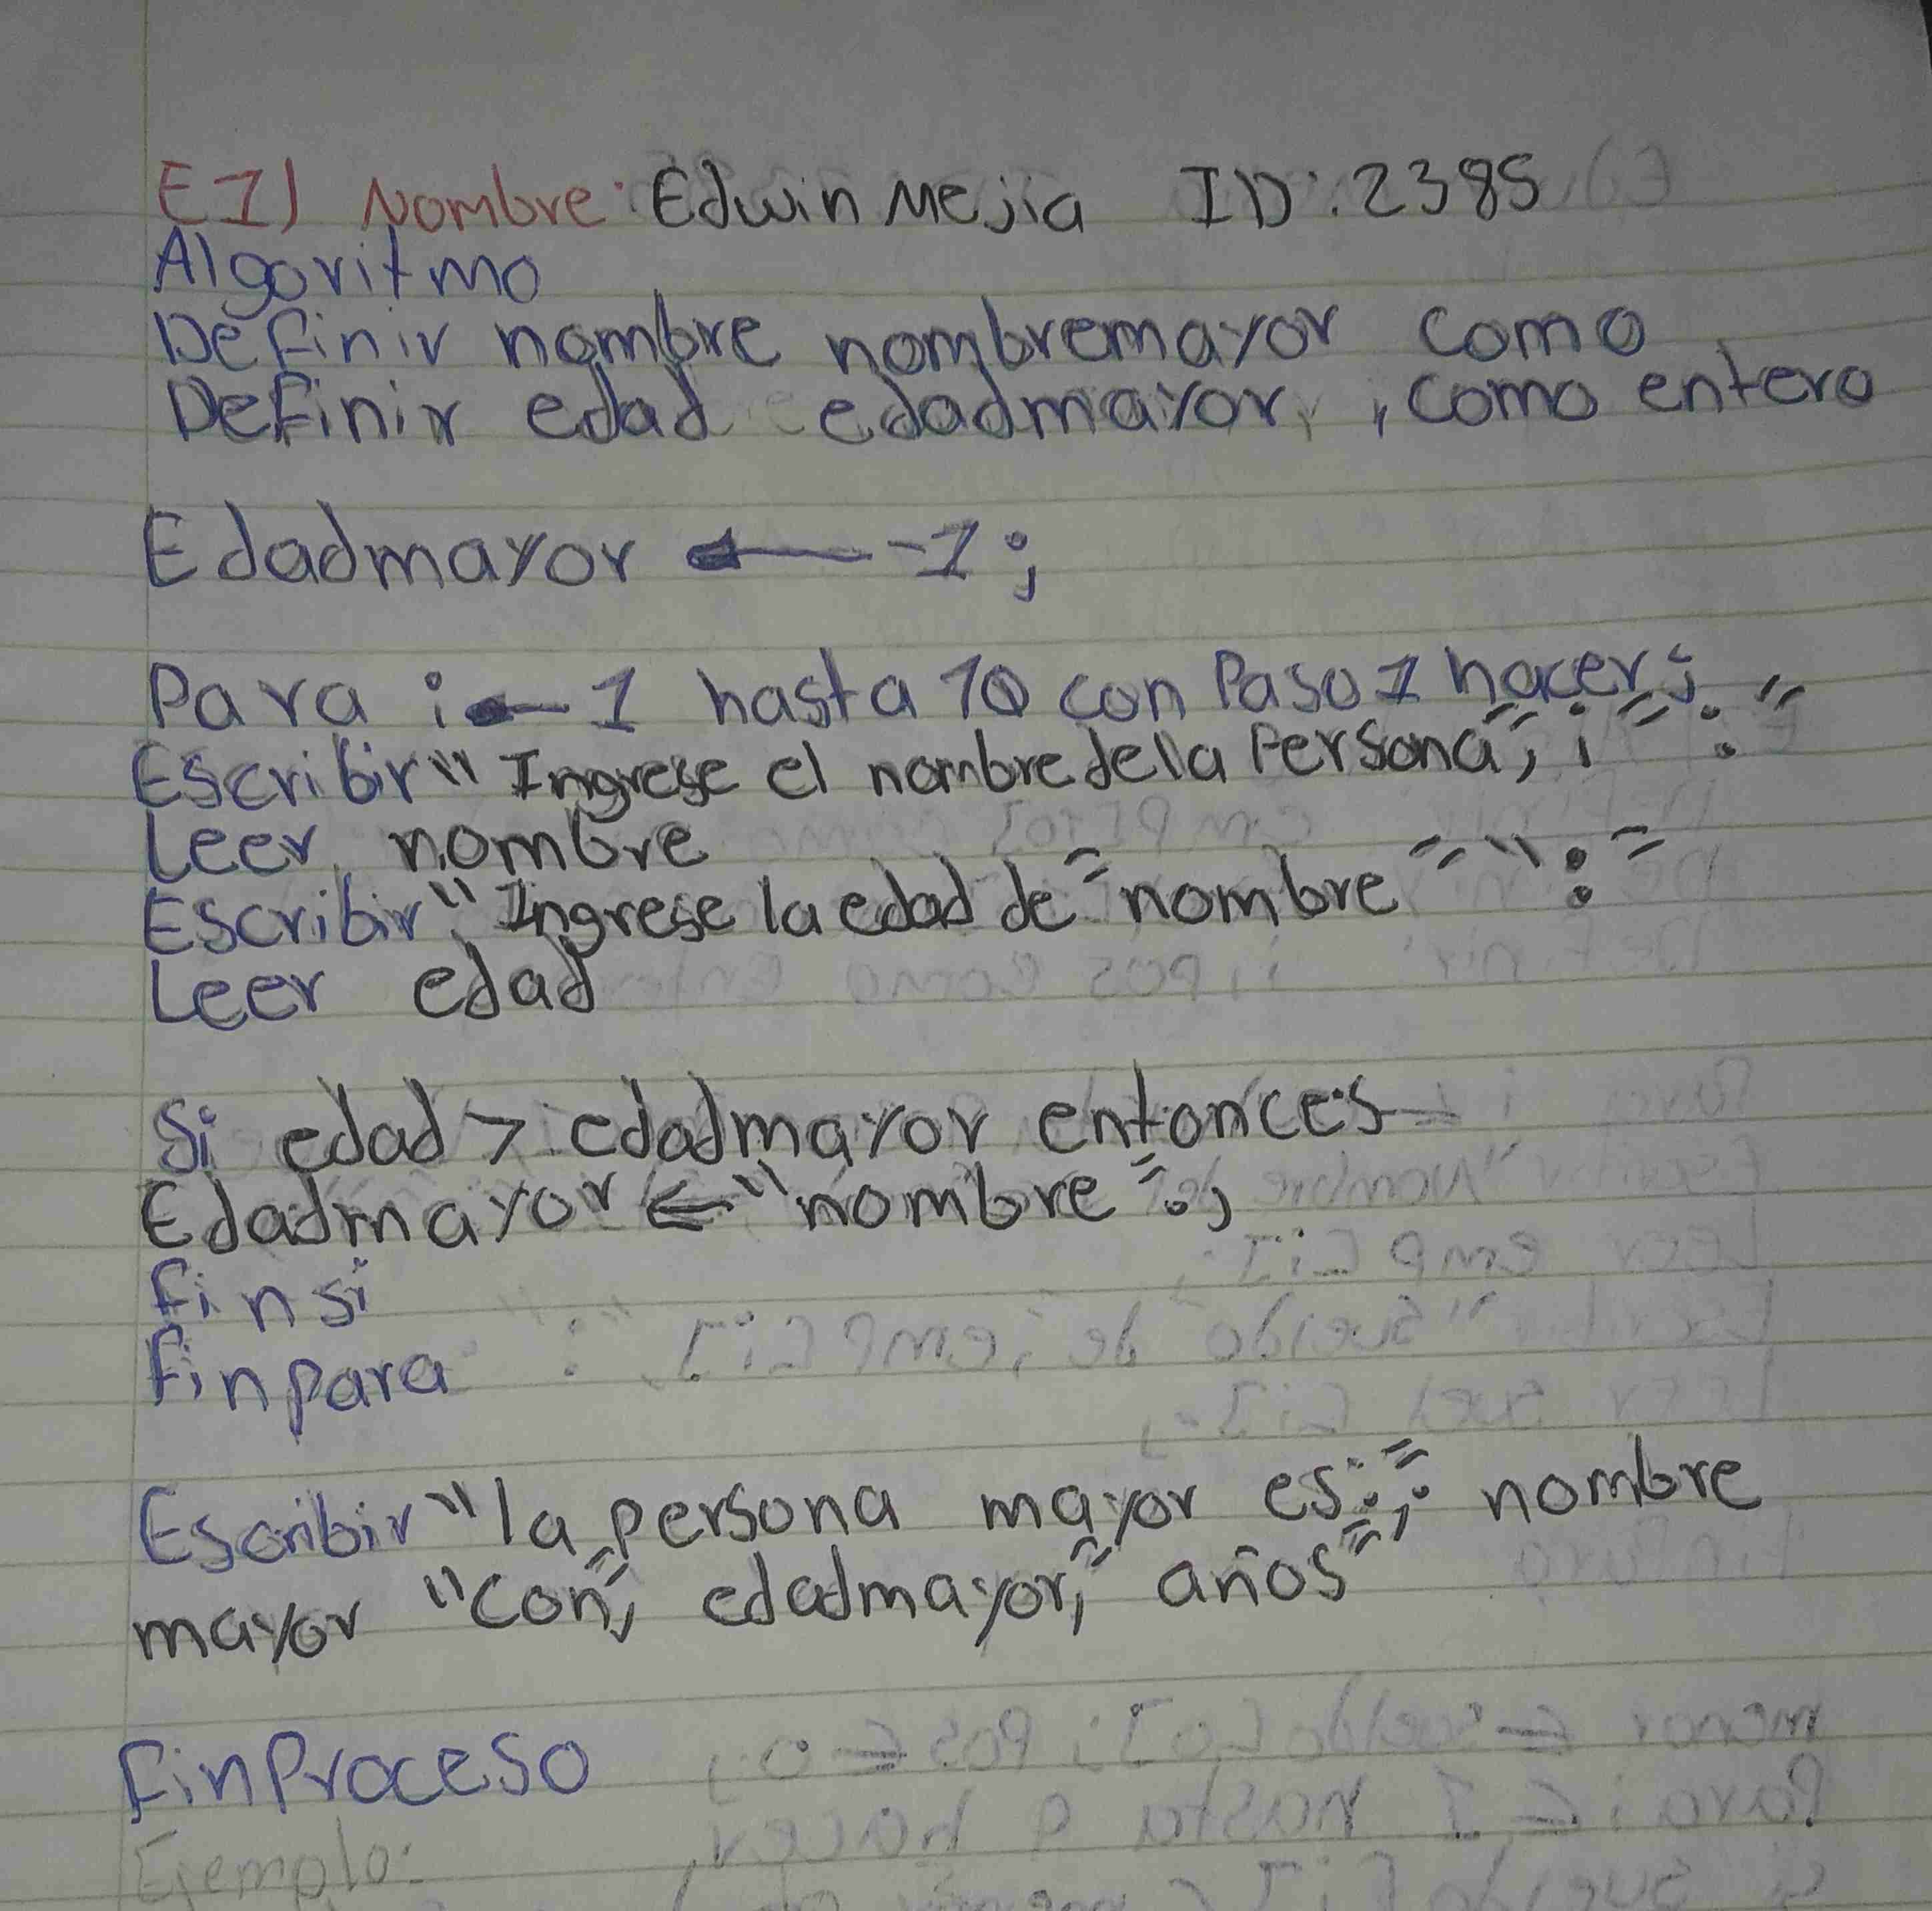 E1) Nombre: Edwin Mejia ID: 2385
Algoritmo
Definir nombre nombremayor como
Definir edad edadmayor, como entero
Edadmayor ← -1;
Para i ← 1 hasta 10 con Paso 1 hacer;
Escribir "Ingrese el nombre de la Persona", i ":"
Leer nombre
Escribir "Ingrese la edad de "nombre" ":"
Leer edad
Si edad > edadmayor entonces
Edadmayor ← "nombre";
finsi
finpara
Escribir "la persona mayor es:"; nombre
mayor "con", edadmayor, "años";
FinProceso
Ejemplo: